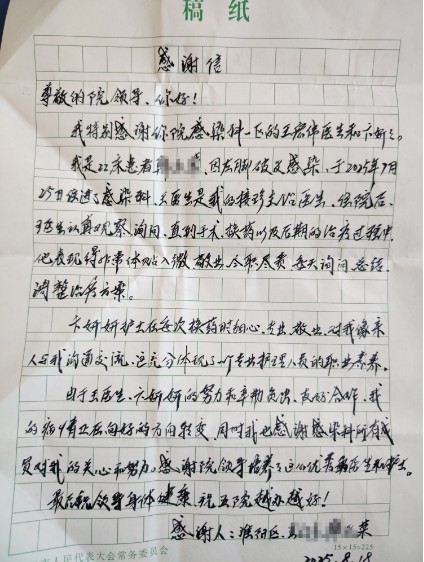 稿纸
感谢信
尊敬的院领导、你好！
我特别感谢你院感染科一区的王宏伟医生和卞妍妍。
我是22床患者 因右脚破皮感染，于2025年7月
25日住进了感染科，王医生是我的接珍主治医生，住院后，
王医生认真观察询问，直到手术、换药以及后期的治疗过程中，
他表现得非常体贴入微，敬业，尽职尽责，每天询问总结，
调整治疗方案。
卞妍妍护士在每次换药时细心，专业，敬业，对我像亲
人与我沟通交流，这充分体现了一个专业护理人员的职业素养。
由于王医生、卞妍妍的努力和辛勤负出，友好合作，我
的病情正在向好的方向转变，同时我也感谢感染科所有成
员对我的关心和努力，感谢院领导培养了这么优秀的医生和护士。
最后祝领导身体健康，祝医院越办越好！
感谢人：淮阳区 菜
人民代表大会常务委员会
15×15=225
2025.8.18